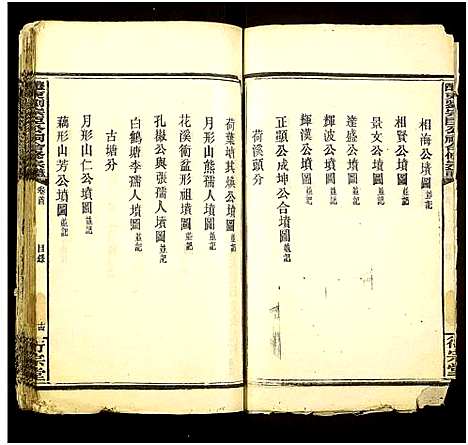 相海公墳圖並記
相賢公墳圖並記
景文公墳圖並記
達盛公墳圖並記
輝波公墳圖並記
輝漢公墳圖並記
正顯公成坤公合墳圖並記
荷溪頭分
荷葉塘其煥公墳圖並記
月形山熊孺人墳圖並記
花溪衛盆形祖墳圖並記
孔嶽公與張孺人墳圖並記
白鶴塘李孺人墳圖並記
古塘分
月形山仁公墳圖並記
藕形山芳公墳圖並記
卷首
目錄
衍宗堂